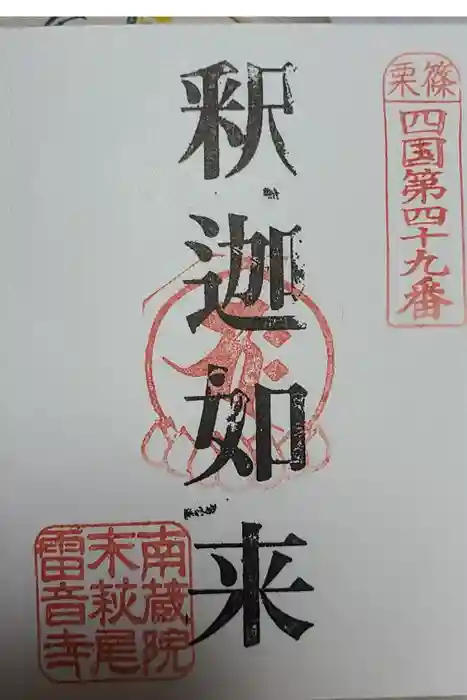 篠栗
四国第四十九番
釈迦如来
南蔵院
末萩尾
雷音寺